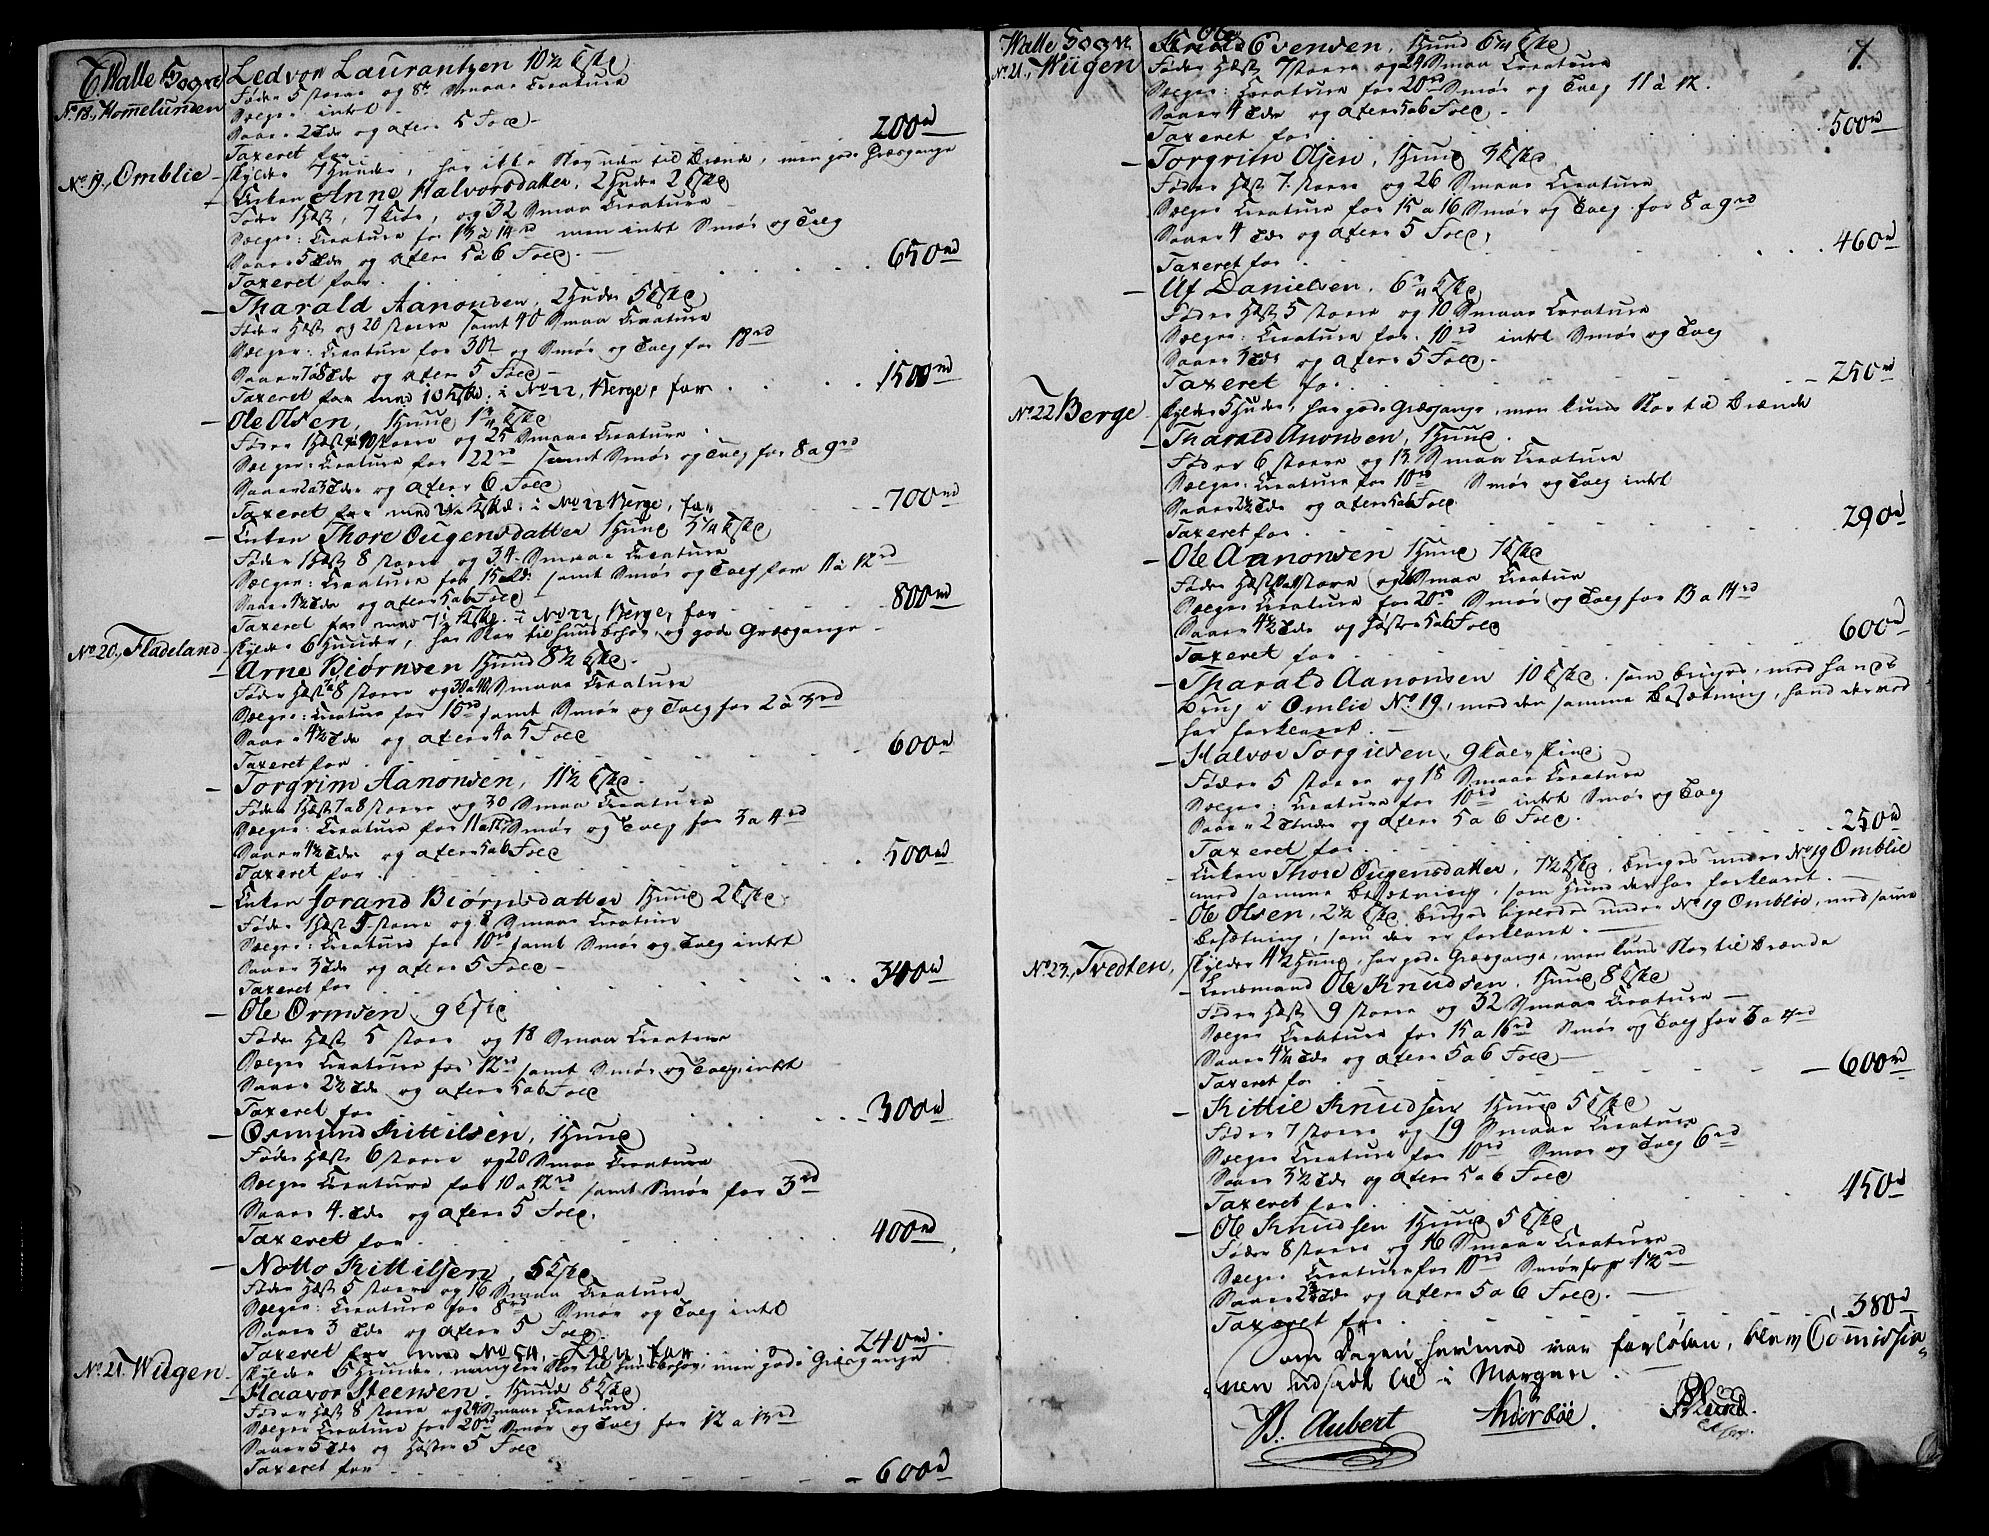 Walle Sogn
No 18, Homelunden
Ledvor Laurantzen 10½ Eske
Føder 5 store og 8te Smaae Creature
Sælger intet.
Saaer 2 Tdr og afler 5 Fold
Taxeret for 200rd
No 19, Omblie
skylder 7 Huuder, har ikke Skov uden til Brænde, men gode Græsgange
Enken Anne Halvorsdatter, 2 Huder 2 Eske
Føder 1 Hest, 7 Kiør, og 32 Smaa Creature
Sælger: Creature for 13 à 14rd men intet Smør og Talg
Saaer 5 Tdr og afler 5 a 6 Fold.
Taxeret for 650rd
Tharald Aanonsen, 2 Huder 5 Eske
Føder Hest og 20 store samt 40 Smaa Creature
Sælger: Creature for 30rd og Smør og Talg for 18rd
Saaer 7 à 8 Tdr og afler 5 Fold
Taxeret for med 10 Eske i No 22, Berge, for 1500rd
Ole Olsen, 1 Huud Eske
Føder 1 Hest, 10 store og 25 Smaae Creature
Sælger: Creature for 22rd samt Smør og Talg for 8 a 9rd
Saaer 2 a 3 Tdr og afler 6 Fold
Taxeret for med 2½ Eske i No 22 Berge, for 700rd
Enken Thore Ougensdatter 1 Huud Eske
Føder 1 Hest 8 store og 34 Smaae Creature
Sælger: Creature for 15 samt Smør og Talg for 11 à 12rd
Saaer 4½ Tdr og afler 5 a 6 Fold
Taxeret for med 7½ Eske i No 22, Berge, for 800rd
No 20, Fladeland
skylder 6 Huuder, har Skov til Huusbehov, og gode Græsgange
Arne Biørnsen 1 Huud 8½ Eske
Føder Hest 8 store og 30 a 40 Smaa Creature
Sælger: Creature for 15rd samt Smør og Talg for 2 à 3rd
Saaer 4½ Tdr og afler 4 a 5 Fold
Taxeret for 600rd
Torgrim Aanonsen, 11½ Eske
Føder Hest 7 a 8 store og 30 Smaa Creature
Sælger: Creature for 11 a 12 Smør og Talg for 3 a 4rd
Saaer 4½ Tdr og afler 5 a 6 Fold
Taxeret for 500rd
Enken Jorand Biørnsdatter 1 Huud 2 Eske
Føder Hest 5 store og 8 Smaae Creature
Sælger: Creature for 10rd samt Smør og Talg intet
Saaer 3 Tdr og afler 5 Fold
Taxeret for 340rd
Ole Ormsen, 9 Eske
Føder Hest 5 store og 18 Smaae Creature
Sælger Creature for 12rd samt Smør og Talg, intet
Saaer 2½ Tdr og afler 5 a 6 Fold
Taxeret for 300rd
Osmund Kittilsen, 1 Huud
Føder Hest 6 store og 20 Smaae Creature
Sælger Creature for 10 a 12rd samt Smør for 3rd
Saaer 4 Tdr og afler 5 Fold.
Taxeret for 400rd
Notto Kittilsen, 5 Eske
Føder Hest 5 store og 16 Smaa Creature
Sælger: Creature for 8rd Smør og Talg intet
Saaer 3 Tdr og afler 5 Fold
Taxeret for med No Lien, for 240rd
No 21. Wiigen
skylder 6 Huuder, mangler Skov til Huusbehov, men gode Græsgange
Haavor Steensen, 1 Huud 8 Eske
Føder Hest 8 store og 24 Smaae Creature
Sælger Creature for 20rd Smør og Talg for 12 a 13rd
Saaer 5 Tdr og Høster 5 Fold
Taxeret for 600rd
7.
Walle Sogn
No 21, Wiigen
Ole Evensen, 1 Huud Eske
Føder Hest 7 store og 24 Smaa Creature
Sælger: Creature for 20rd Smør og Talg 11 à 12.
Saaer 4 Tdr og afler 5 a 6 Fold.
Taxeret for 500rd
Torgrim Olsen, 1 Huud 3 Eske
Føder Hest 7 store og 26 Smaa Creature
Sælger Creature for 15 a 16 Smør og Talg for 8 a 9rd
Saaer 4 Tdr og afler 5 Fold,
Taxeret for 460rd
Ulf Danielsen, Eske
Føder Hest 5 store og 10 Smaae Creature
Sælger: Creature for 10rd intet Smør og Talg
Saaer 3 Tdr og afler 5 Fold.
Taxeret for 250rd
No 22 Berge
skylder 5 Huder, har gode Græsgange, men kuns Skov til Brænde
Tharald Anonsen, 1 Huud.
Føder 6 store og 12 Smaa Creature
Sælger: Creature for 10rd Smør og Talg intet
Saaer 2½ Tdr og afler 5 a 6 Fold
Taxeret for 290rd
Ole Aanonsen 1 Huud 7 Eske
Føder Hest store og Smaa Creatur
Sælger Creature for 20rd Smør og Talg for 13 a 14rd
Saaer 4½ Tdr og Høster 5 a 6 Fold
Taxeret for 600rd
Tharald Aanonsen 10 Eske som bruges, med hans
Brug i Omlie No 19, med den samme Besætning, hand derved
har forklaret.
Halvor Torgiusen, 9 Kalvskind
Føder 5 store og 18 Smaae Creature
Sælger: Creature for 10rd intet Smør og Talg
Saaer 2 Tønder og afler 5 a 6 Fold.
Taxeret for 250rd
Enken Thore Ougensdatter, 7½ Eske, bruges under No 19 Omblie
med samme Besætning, som hun der har forklaret.
Ole Olsen, 2½ Eske bruges ligeledes under No 19 Omblie, med samme
Besætning, som der er forklaret.
No 23, Tvedten,
skylder 4½ Huud, har gode Græsgange, men kuns Skov til Brænde
Lensmand Ole Knudsen, 1 Huud 8 Eske
Føder Hest 9 store og 32 Smaae Creature
Sælger Creature for 15 a 16rd Smør og Talg for 3 a 4rd
Saaer 4½ Tdr og afler 5 a 6 Fold
Taxeret for 600rd
Kittil Knudsen 1 Huud 5 Eske
Føder 7 store og 19 Smaae Creature
Sælger Creature for 10rd Smør og Talg 6rd
Saaer 3½ Tdr og afler 5 a 6 Fold
Taxeret for 450rd
Ole Knudsen 1 Huud 5 Eske
Føder 8 store og 16 Smaae Creature
Sælger Creature for 10rd Smør for 1½rd
Saaer Tdr og afler 5 a 6 Fold.
Taxeret for 380rd
som Dagen hermed var forløben, blev Comissio-
nen udsadt til i Morgen.
B. Aubert